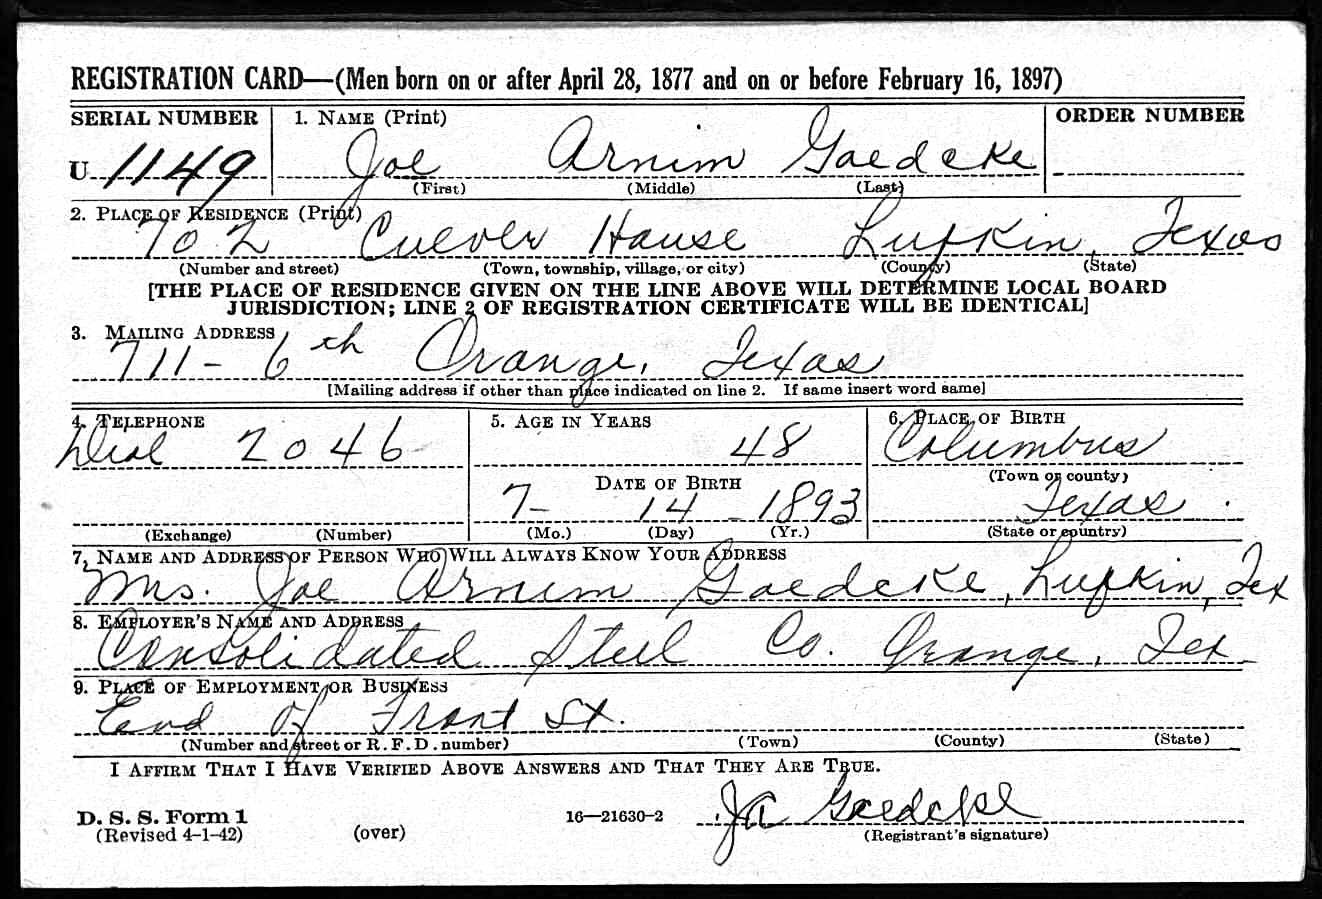 REGISTRATION CARD—(Men born on or after April 28, 1877 and on or before February 16, 1897)
SERIAL NUMBER 1. NAME (Print) ORDER NUMBER
U 1149 Joe Arnim Goedcke
(First) (Middle) (Last)
2. PLACE OF RESIDENCE (Print)
702 Culver House Lufkin, Texas
(Number and street) (Town, township, village, or city) (County) (State)
[THE PLACE OF RESIDENCE GIVEN ON THE LINE ABOVE WILL DETERMINE LOCAL BOARD
JURISDICTION; LINE 2 OF REGISTRATION CERTIFICATE WILL BE IDENTICAL]
3. MAILING ADDRESS
711 - 6th Orange, Texas
[Mailing address if other than place indicated on line 2. If same insert word same]
4. TELEPHONE 5. AGE IN YEARS 6. PLACE OF BIRTH
Dial 2046 48 Columbus
DATE OF BIRTH (Town or county)
7 - 14 - 1893 Texas
(Exchange) (Number) (Mo.) (Day) (Yr.) (State or country)
7. NAME AND ADDRESS OF PERSON WHO WILL ALWAYS KNOW YOUR ADDRESS
Mrs. Joe Arnim Goedcke, Lufkin, Tex
8. EMPLOYER'S NAME AND ADDRESS
Consolidated Steel Co. Orange, Tex
9. PLACE OF EMPLOYMENT OR BUSINESS
End of Front St.
(Number and street or R. F. D. number) (Town) (County) (State)
I AFFIRM THAT I HAVE VERIFIED ABOVE ANSWERS AND THAT THEY ARE TRUE.
D. S. S. Form 1 16—21630-2 JA Goedcke
(Revised 4-1-42) (over) (Registrant's signature)